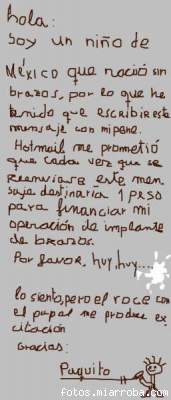 hola:
Soy un niño de
México que nació sin
brazos, por lo que he
tenido que escribir este
mensaje con mi pene.
Hotmail me prometió
que cada vez que se
reenviara este men
saje destinaría 1 peso
para financiar mi
operación de implante
de brazos.
Por favor, huy, huy....
lo siento, pero el roce con
el papel me produce ex
citación
Gracias:
Paquito
fotos.miarroba.com